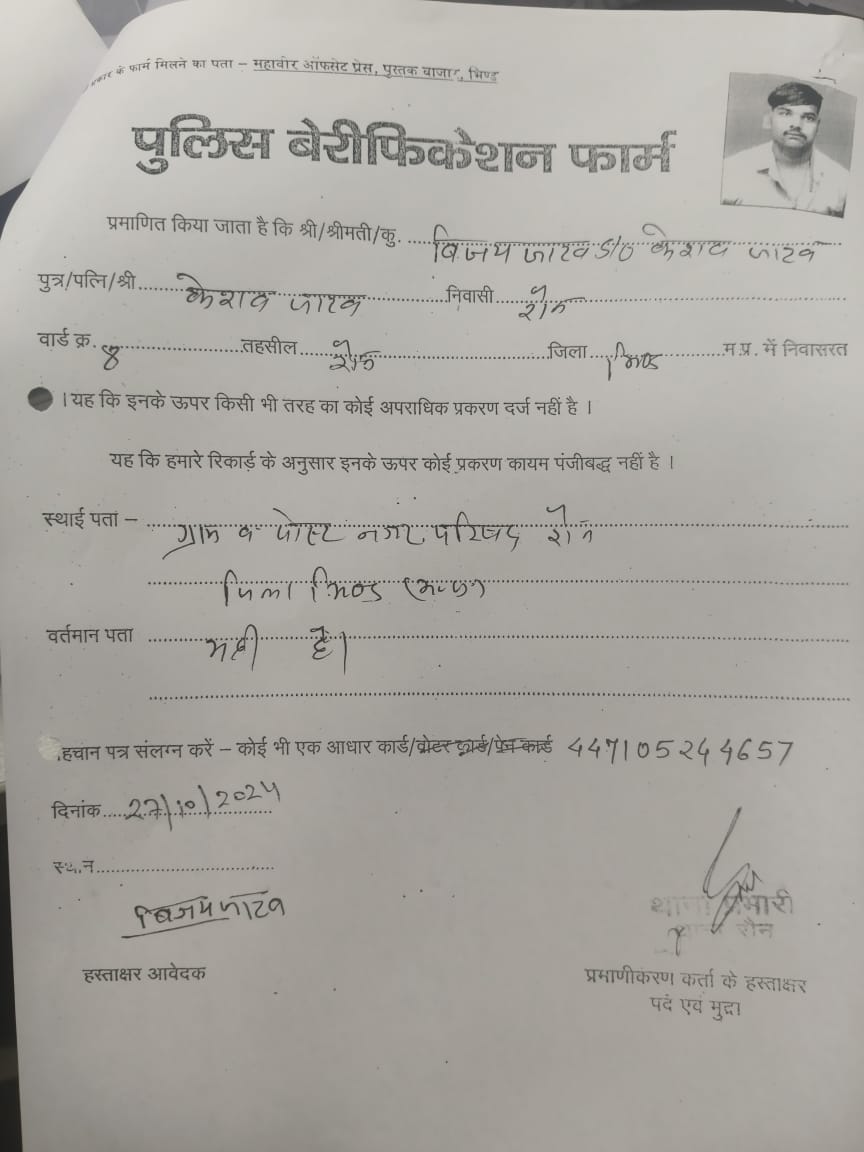 प्रकार के फार्म मिलने का पता – महावीर ऑफसेट प्रेस, पुस्तक बाजार, भिण्ड
पुलिस बेरीफिकेशन फार्म
प्रमाणित किया जाता है कि श्री/श्रीमती/कु. विजय जाटव S/O केशव जाटव
पुत्र/पत्नि/श्री केशव जाटव निवासी रौन
वार्ड क्र. 8 तहसील रौन जिला भिण्ड म.प्र. में निवासरत
। यह कि इनके ऊपर किसी भी तरह का कोई अपराधिक प्रकरण दर्ज नहीं है ।
यह कि हमारे रिकार्ड के अनुसार इनके ऊपर कोई प्रकरण कायम पंजीबद्ध नहीं है ।
स्थाई पता – ग्राम व पोस्ट नगर परिषद रौन
जिला भिण्ड (म.प्र.)
वर्तमान पता यही है।
हचान पत्र संलग्न करें – कोई भी एक आधार कार्ड/वोटर कार्ड/पेन कार्ड 447105244657
दिनांक 27/10/2024
स्थान
विजय जाटव
थाना प्रभारी
थाना रौन
हस्ताक्षर आवेदक
प्रमाणीकरण कर्ता के हस्ताक्षर
पद एवं मुद्रा